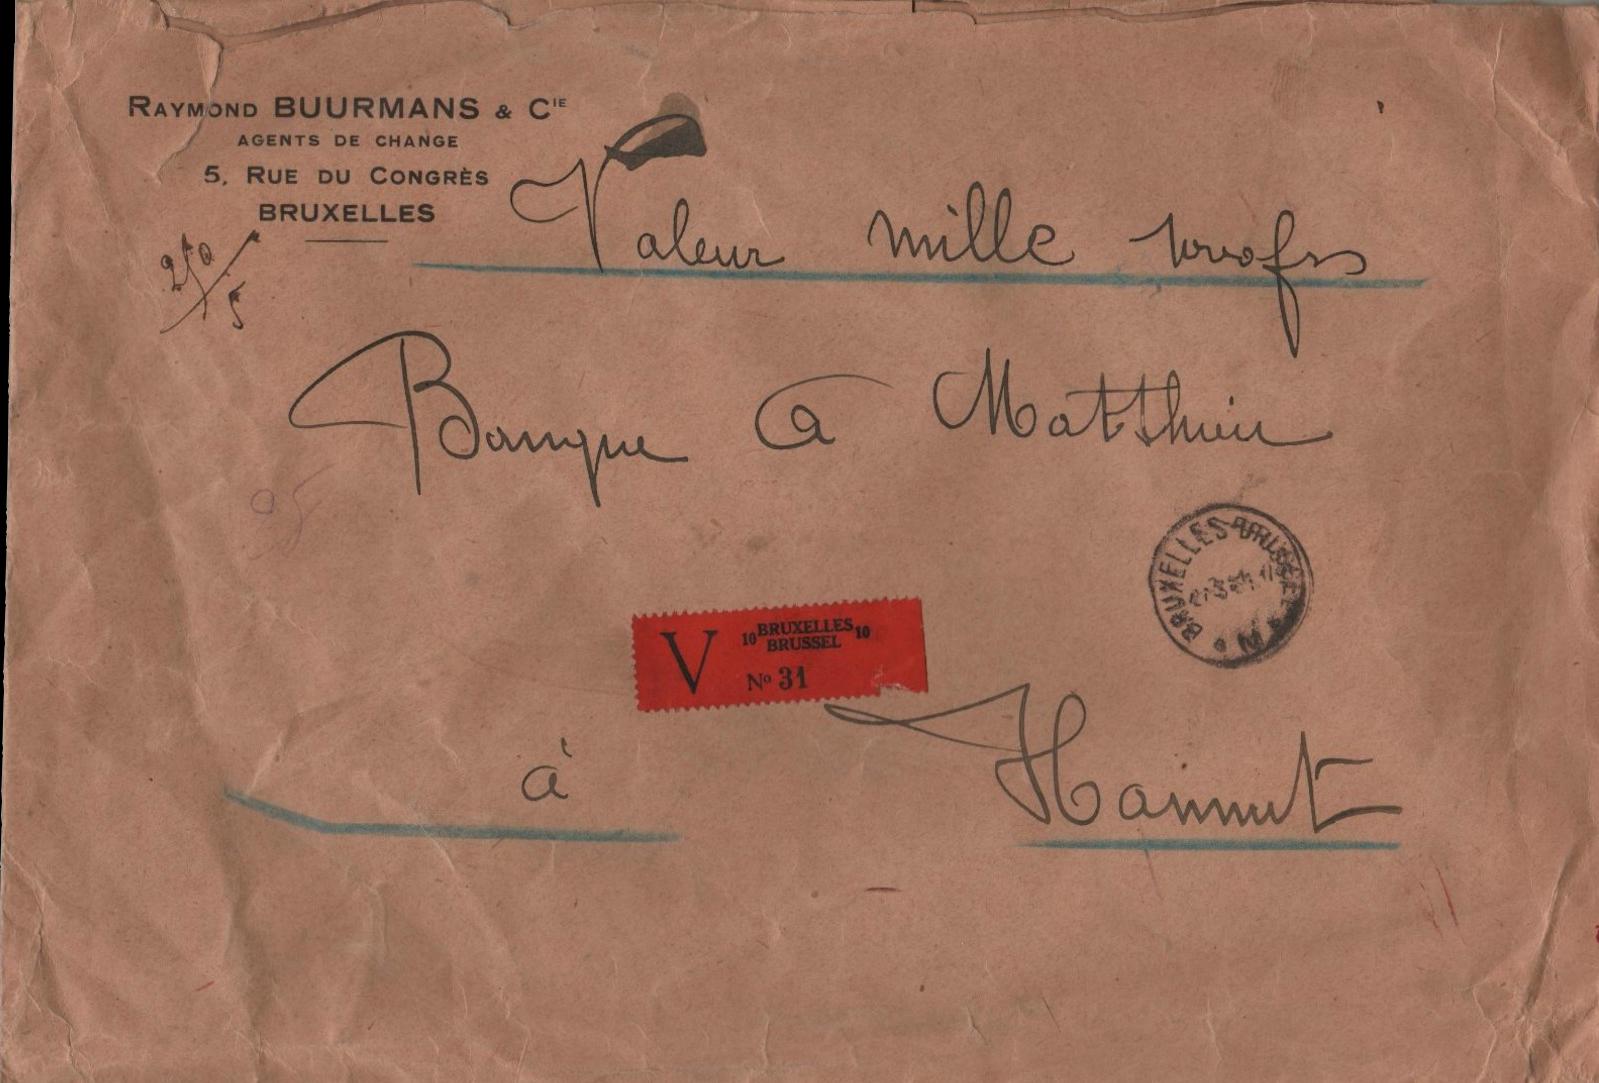 RAYMOND BUURMANS & CIE
AGENTS DE CHANGE
5, RUE DU CONGRÈS
BRUXELLES
Valeur mille 1000 frs
210/5
Banque A Matthieu
BRUXELLES-BRUSSEL
V 10 BRUXELLES 10
BRUSSEL
No 31
à Hannut